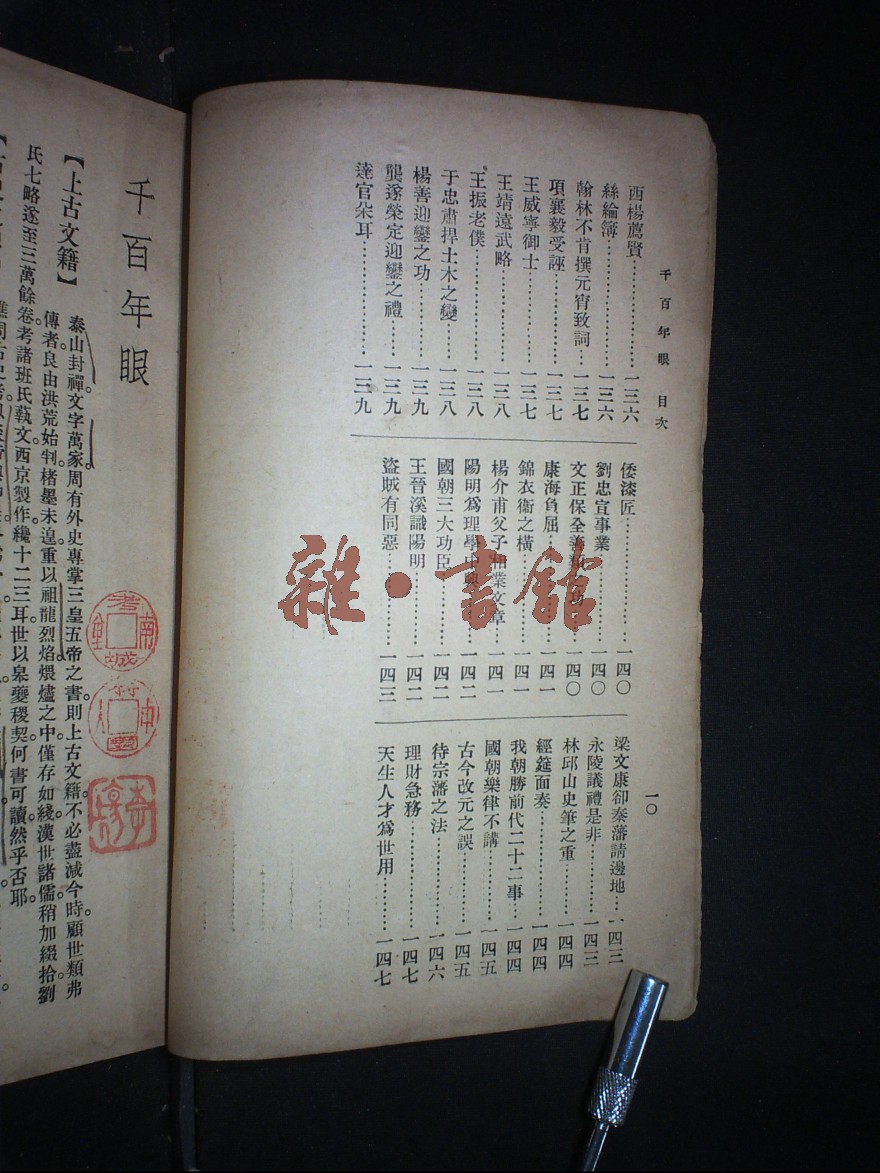 千百年眼 目次
一〇
西楊薦賢………………一三六
絲綸簿………………一三六
翰林不肯撰元宵致詞……一三七
項襄毅受誣…………一三七
王威寧御士…………一三七
王靖遠武略…………一三八
王振老僕……………一三八
于忠肅捍土木之變……一三八
楊善迎鑾之功………一三九
龔遂榮定迎鑾之禮……一三九
達官朵耳……………一三九
倭漆匠………………一四〇
劉忠宣事業…………一四〇
文正保全善類……一四〇
康海負屈……………一四一
錦衣衞之橫…………一四一
楊介甫父子相業文章……一四一
陽明爲理學中興……一四二
國朝三大功臣………一四二
王晉溪識陽明………一四二
盜賊有同惡…………一四三
梁文康卻秦藩請邊地…一四三
永陵議禮是非………一四三
林邱山史筆之重……一四四
經筵面奏……………一四四
我朝勝前代二十二事……一四四
國朝樂律不講………一四五
古今改元之誤………一四五
待宗藩之法…………一四六
理財急務……………一四七
天生人才爲世用……一四七
雜·書館
千百年眼
【上古文籍】
泰山封禪文字萬家周有外史專掌三皇五帝之書。則上古文籍。不必盡減今時。顧世類弗
傳者。良由洪荒始判。楮墨未遑。重以祖龍烈焰。煨燼之中。僅存如綫。漢世諸儒。稍加綴拾。劉
氏七略。遂至三萬餘卷。考諸班氏藝文。西京製作。纔十二三耳。世以皋夔稷契何書可讀。然乎否耶